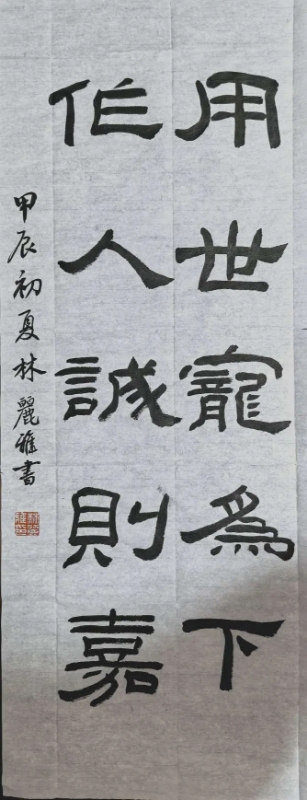 用世寵為下
作人誠則嘉
甲辰初夏林麗雅書